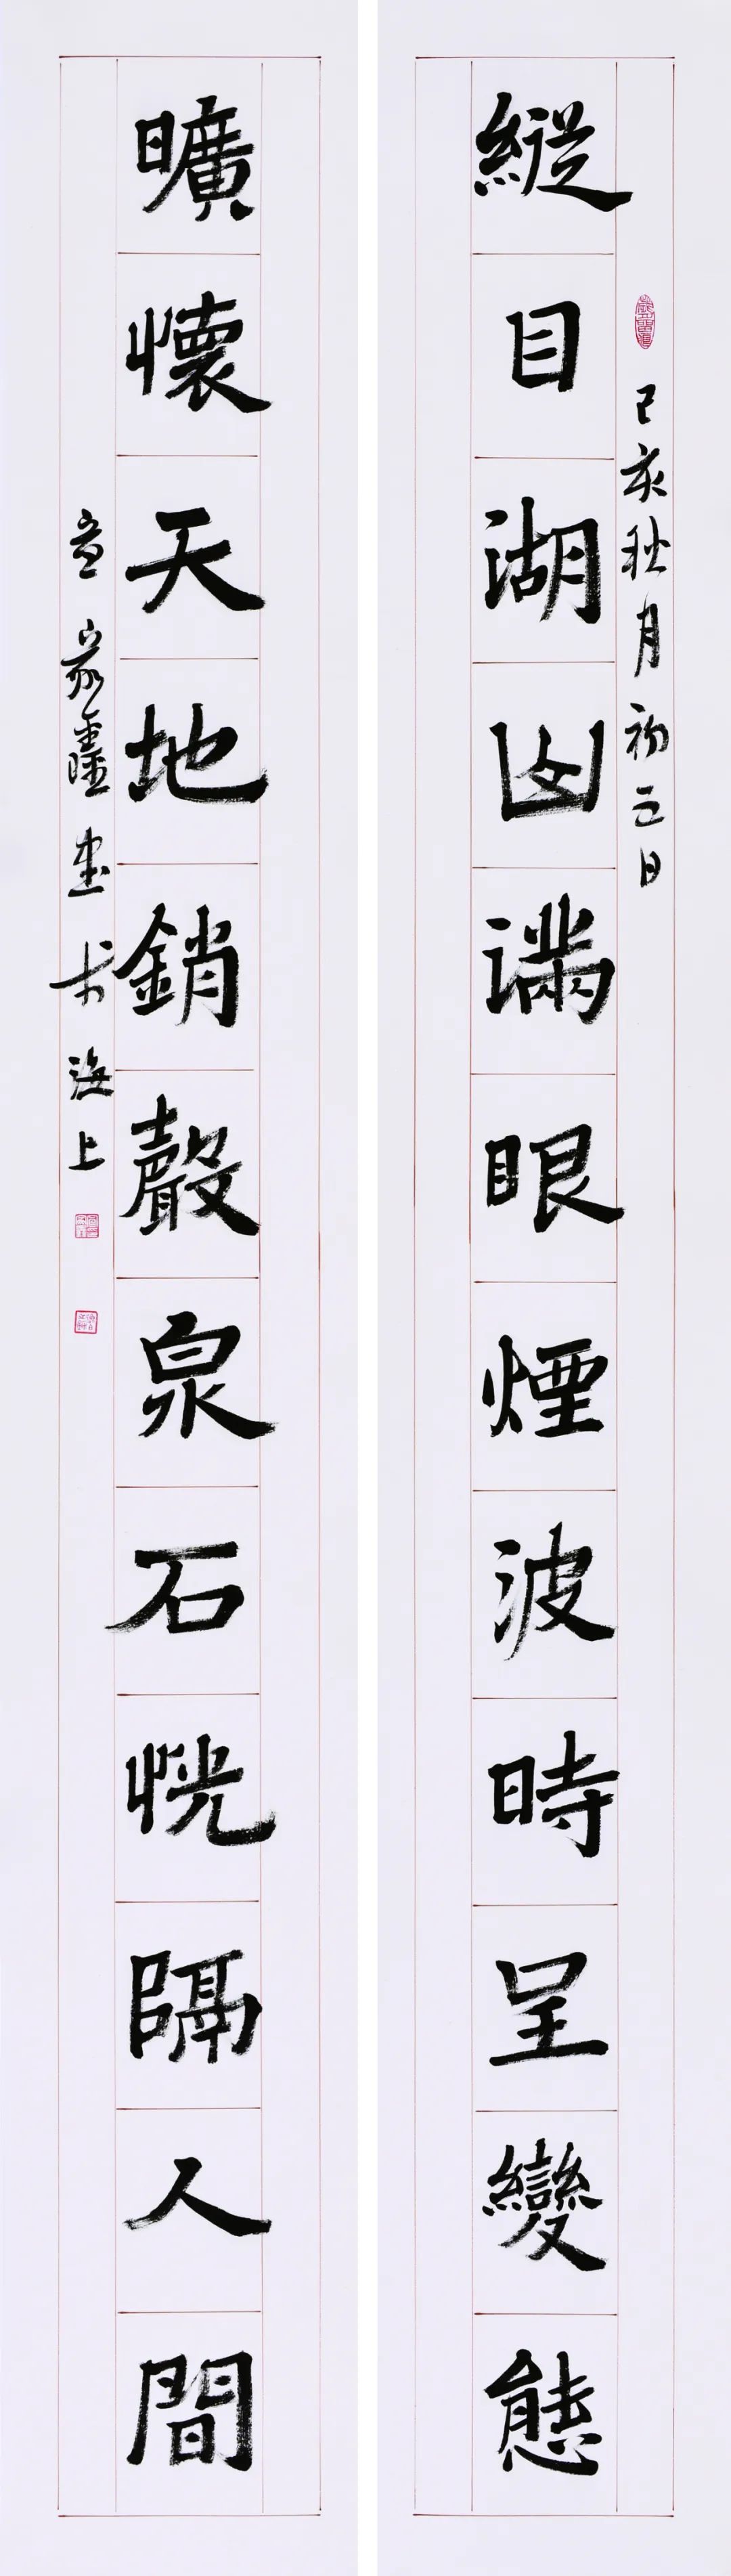 縱目湖山滿眼煙波時呈變態
己亥秋月初五日
曠懷天地銷聲泉石恍隔人間
書於海上